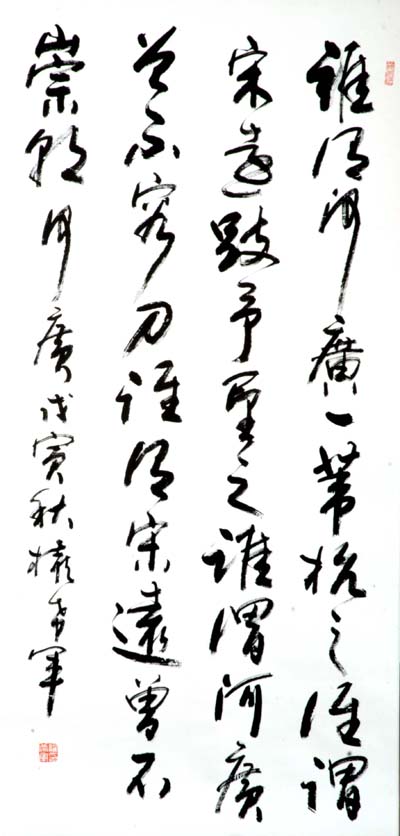 誰謂河廣一葦杭之誰謂
宋遠跂予望之誰謂河廣
曾不容刀誰謂宋遠曾不
崇朝 河廣 戊寅秋 軍